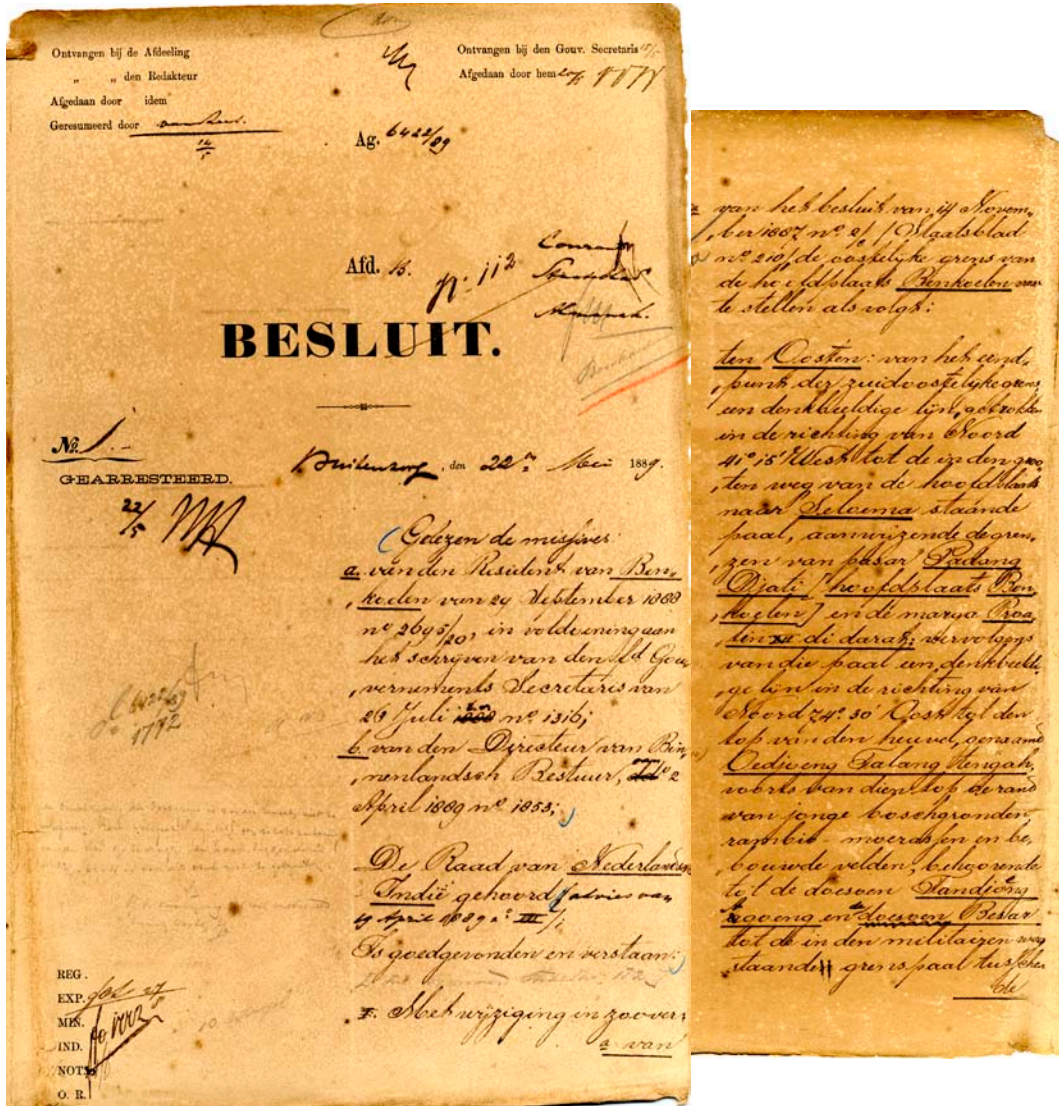 Ontvangen bij de Afdeeling
„ „ den Redakteur
Afgedaan door idem
Geresumeerd door
14/5
Ontvangen bij den Gouv. Secretaris
Afgedaan door hem
Ag. 6422/89
Afd. B.
No 112
BESLUIT.
No. 1.-
GEARRESTEERD.
22/5
Buitenzorg, den 22en Mei 1889.
Gelezen de missives:
a. van den Resident van Ben-
koelen van 29 September 1888
no 2695/20, in voldoening aan
het schrijven van den Gou-
vernements Secretaris van
26 Juli no 1316;
b. van den Directeur van Bin-
nenlandsch Bestuur, 2
April 1889 no 1853;
De Raad van Nederlandsch
Indië gehoord (advies van
April 1889 no III);
Is goedgevonden en verstaan:
I. Met wijziging in zoover
a van
6422/89
1792
REG.
EXP.
MIN.
IND.
NOTS
O. R.
van het besluit van 14 Novem-
ber 1887 no (Staatsblad
no 210) de oostelijke grens van
de hoofdplaats Benkoelen
te stellen als volgt:
ten Oosten: van het eind-
punt der zuidoostelijke grens
een denkbeeldige lijn, getrokken
in de richting van Noord
41° 15' West tot de in den groo-
ten weg van de hoofdplaats
naar Seloema staande
paal, aanwijzende de gren-
zen van pasar Padang
Djati [hoofdplaats Ben-
koelen] en de marga Proa-
tin XII di darat; vervolgens
van die paal een denkbeeldi-
ge lijn in de richting van
Noord 74° 30' Oost tot den
top van den heuvel, genaamd
Oedjoeng Talang tengah,
voorts van dien top de rand
van jonge boschgronden,
rambie-moerassen en be-
bouwde velden, behoorende
tot de doesoen Tandjong
Agoeng en doesoen Besar
tot de in den militairen weg
staande grenspaal tusschen
de